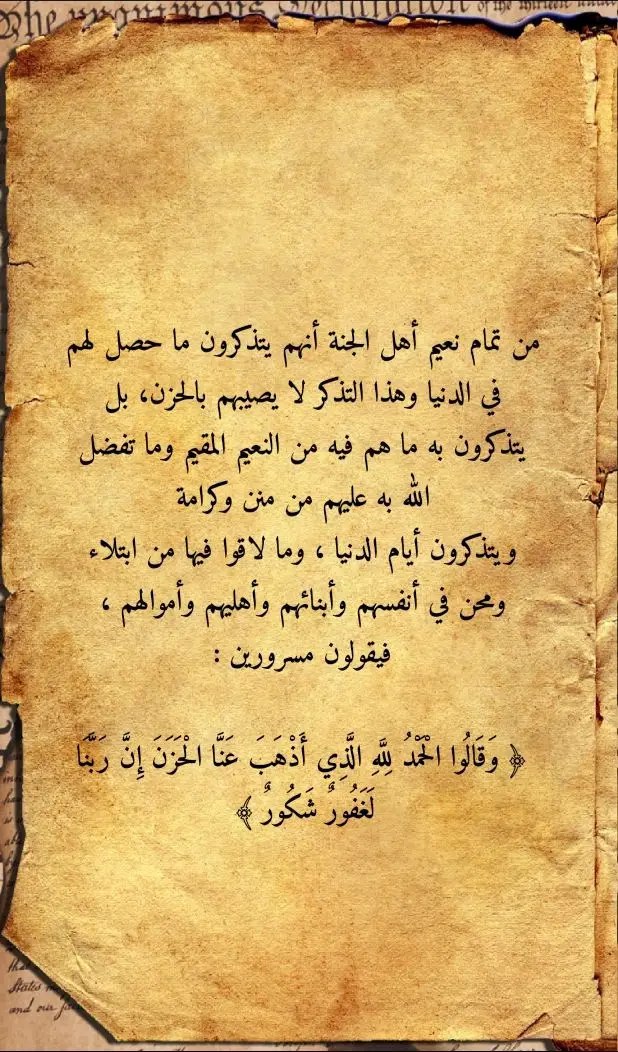 The unanimous Declaration of the thirteen united
من تمام نعيم أهل الجنة أنهم يتذكرون ما حصل لهم
في الدنيا وهذا التذكر لا يصيبهم بالحزن، بل
يتذكرون به ما هم فيه من النعيم المقيم وما تفضل
الله به عليهم من منن وكرامة
ويتذكرون أيام الدنيا ، وما لاقوا فيها من ابتلاء
ومحن في أنفسهم وأبنائهم وأهليهم وأموالهم ،
فيقولون مسرورين :
﴿ وَقَالُوا الْحَمْدُ لِلَّهِ الَّذِي أَذْهَبَ عَنَّا الْحَزَنَ إِنَّ رَبَّنَا
لَغَفُورٌ شَكُورٌ ﴾
States
and our